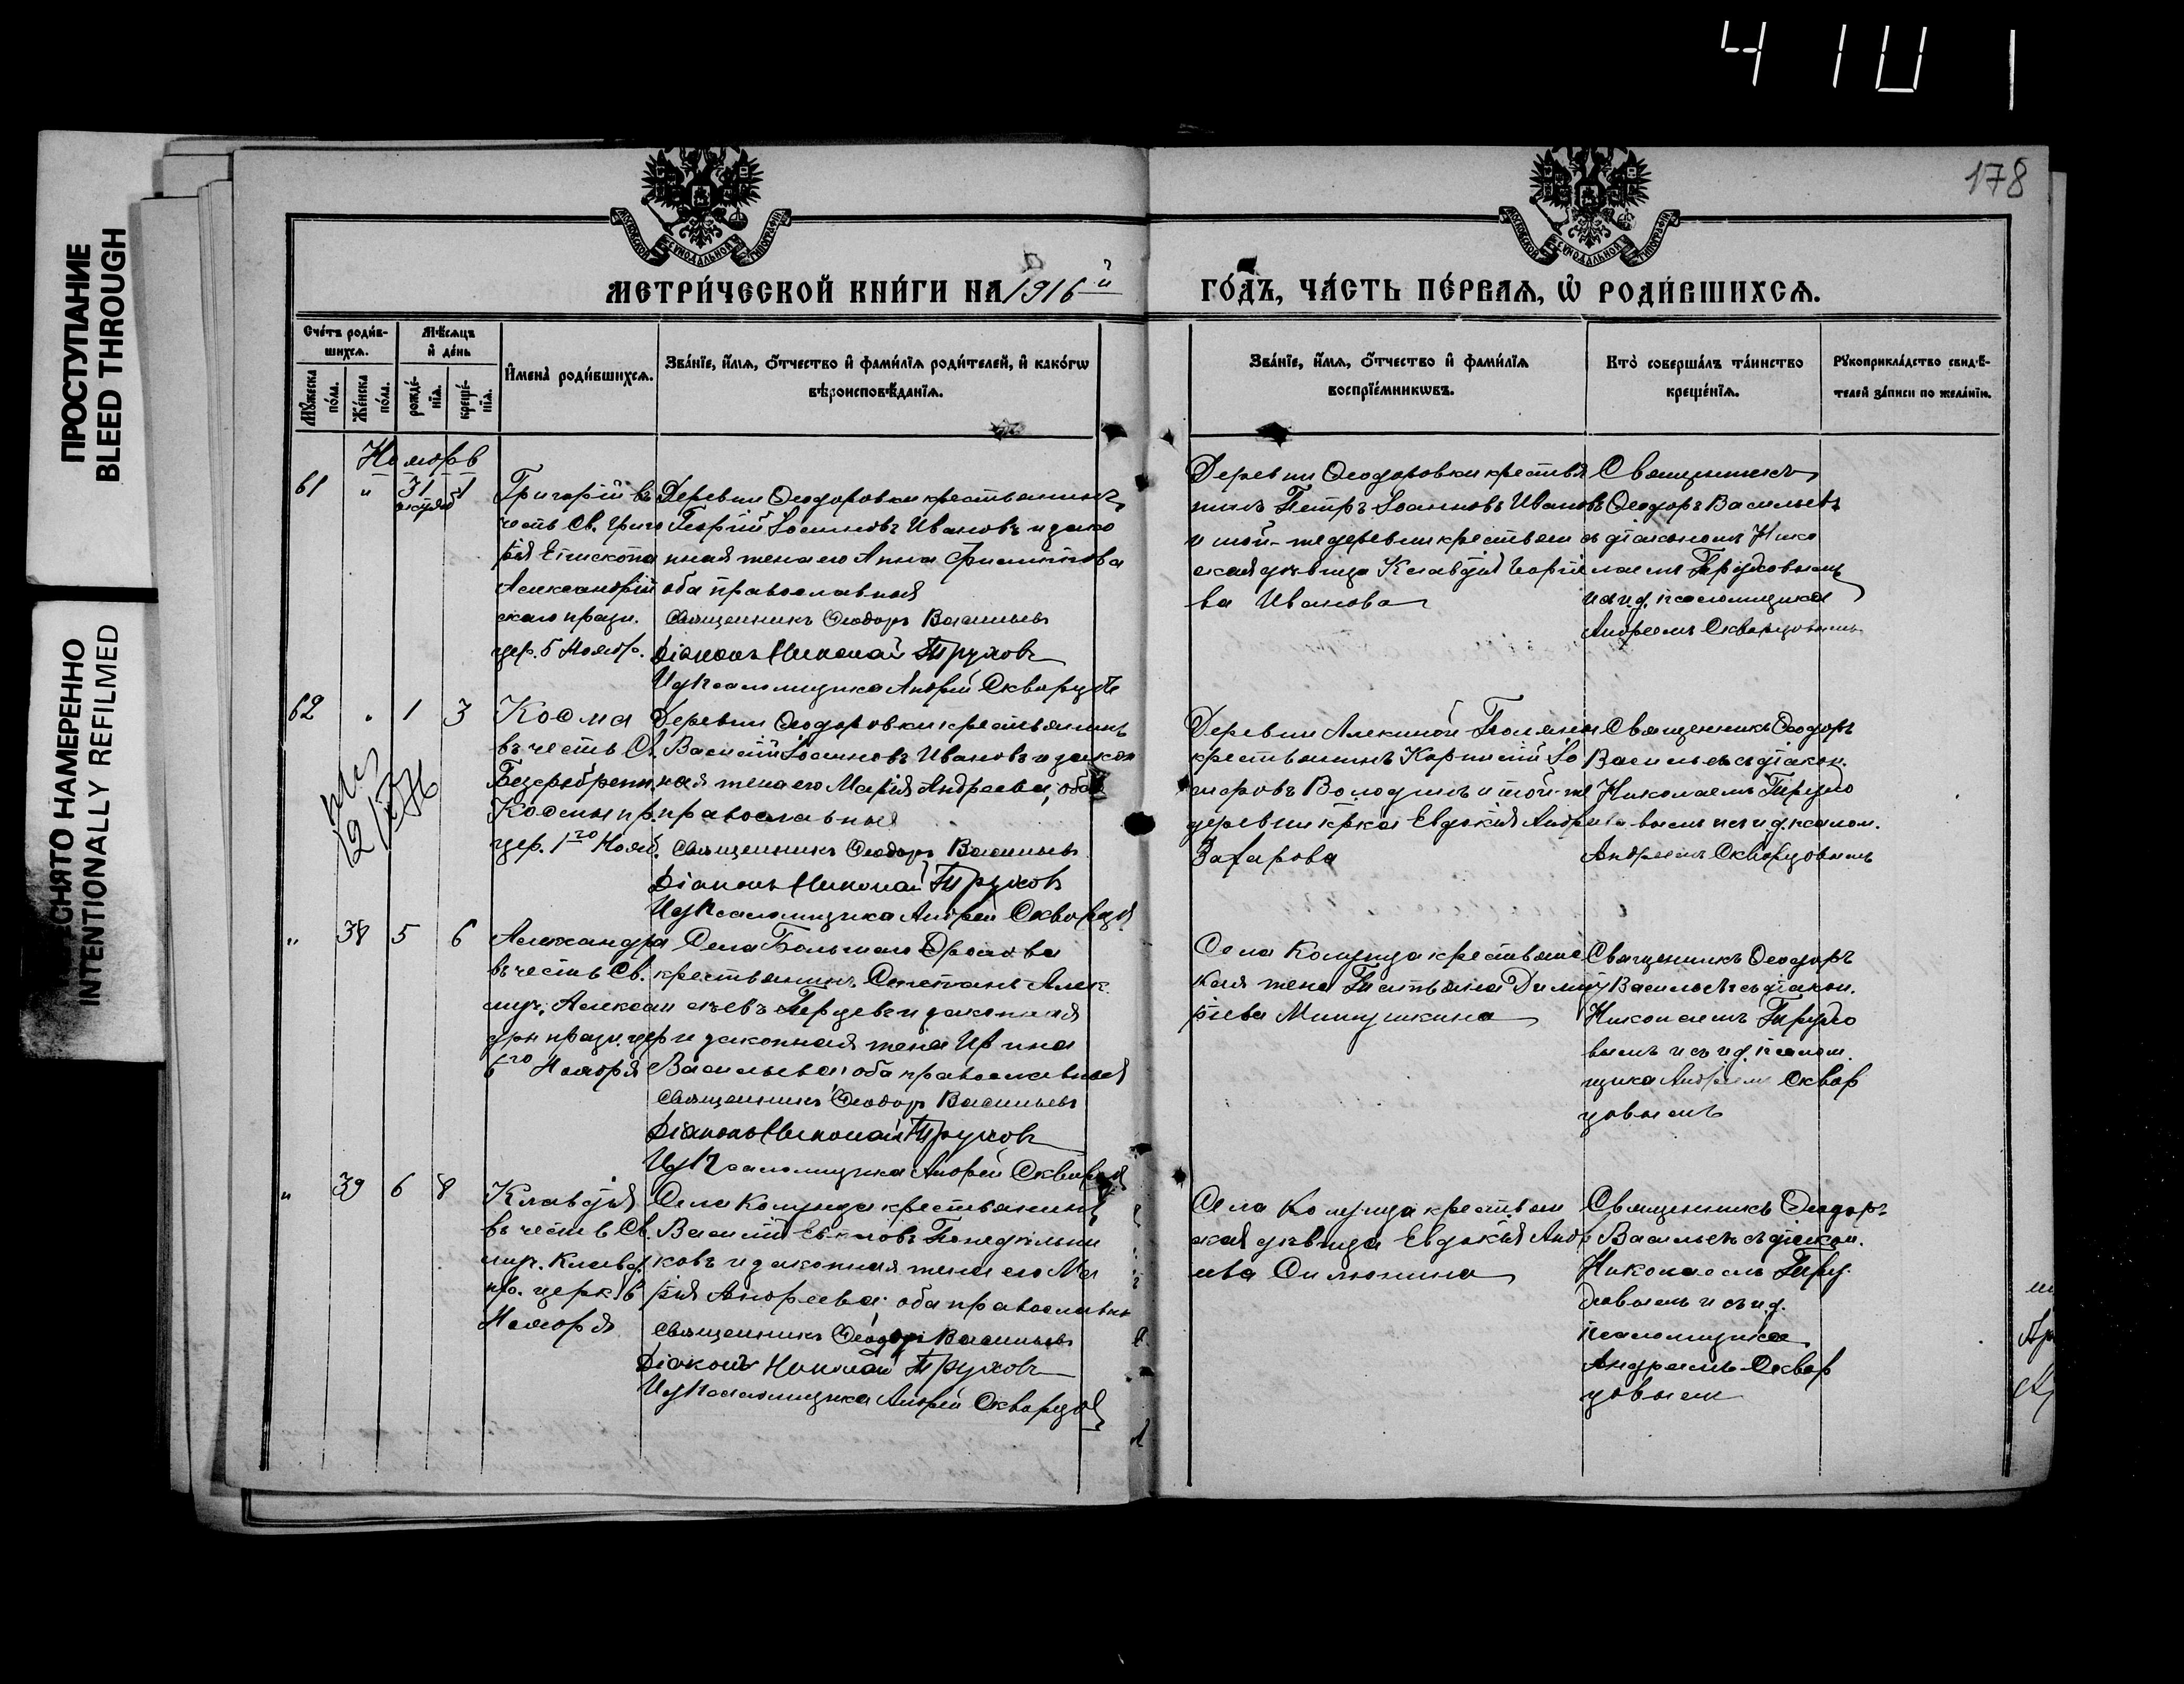 4 1 0 1
ПРОСТУПАНИЕ
BLEED THROUGH
СНЯТО НАМЕРЕННО
INTENTIONALLY REFILMED
178
МЕТРИ́ЧЕСКОЙ КНИ́ГИ НА 1916й
ГО́ДЪ, ЧА́СТЬ ПЕ́РВАѦ, Ѡ҆ РОДИ́ВШИХСѦ.
Сче́тъ роди́в-
шихсѧ.
Мѣ́сѧцъ
и҆ де́нь
Мꙋ́жеска
по́ла.
Же́нска
по́ла.
рожде́-
нїѧ.
креще́-
нїѧ.
И҆мена̀ роди́вшихсѧ.
Зва́нїе, и҆́мѧ, ѻ҆́тчество и҆ фами́лїѧ роди́телей, и҆ како́гѡ
вѣроисповѣ́данїѧ.
Зва́нїе, и҆́мѧ, ѻ҆́тчество и҆ фами́лїѧ
воспрїе́мникѡвъ.
Кто̀ соверша́лъ та́инство
креще́нїѧ.
Рꙋкоприкла́дство свидѣ́-
телей за́писи по жела́нїю.
Ноябрь
61 " 31 1
октяб
Григорій въ
честь Св. Григо
рія Епископа
Александрій
скаго празн.
цер. 5 Ноябр.
Деревни Ѳеодоровки крестьянинъ
Георгій Іоанновъ Ивановъ и зако
нная жена его Анна Филиппова
оба православныя
Священникъ Ѳеодоръ Васильевъ
Діаконъ Николай Труховъ
И д Псаломщика Андрей Скворцовъ
Деревни Ѳеодоровки крестья
нинъ Петръ Іоанновъ Ивановъ
и той-же деревни крестьян
ская дѣвица Клавдія Георгіе
ва Иванова
Священникъ
Ѳеодоръ Васильевъ
съ діакономъ Нико
лаемъ Труховымъ
и и.д. псаломщика
Андреемъ Скворцовымъ
62 " 1 3
Косма
въ честь Св.
Безсребренн.
Космы пр.
цер. 1го Нояб.
Деревни Ѳеодоровки крестьянинъ
Василій Іоанновъ Ивановъ и закон
ная жена его Марія Андреева, оба
православныя
Священникъ Ѳеодоръ Васильевъ
Діаконъ Николай Труховъ
И д Псаломщика Андрей Скворцов
Деревни Алекиной Поляны
крестьянинъ Корнилій
Володинъ и той-же
деревни крка Евдокія Андрее
Захарова
Священникъ Ѳеодоръ
Васильевъ съ діакон.
Николаемъ Трухо
вымъ и и.д. псалом.
Андреемъ Скворцовымъ
" 38 5 6
Александра
въ честь Св.
муч. Алексан
дры празн. цер
6го Ноября
Села Большаго
крестьянинъ Степанъ Алек
сѣевъ и законная
и законная жена Ирина
Васильева оба православныя
Священникъ Ѳеодоръ Васильевъ
Діаконъ Николай Труховъ
И д Псаломщика Андрей Скворцов
Села Комунда крестьянс
кая жена Татьяна Димит
ріева Минушкина
Священникъ Ѳеодоръ
Васильевъ съ діакон.
Николаемъ Трухо
вымъ и съ и.д. псалом
щика Андреемъ Сквор
цовымъ
" 39 6 8
Клавдія
въ честь Св.
муч. Клавд.
пр. церк. 6
Ноября
Села Комунда крестьянинъ
Василій Понедѣльни
ковъ и законная жена его Ма
рія Андреева оба православны
Священникъ Ѳеодоръ Васильевъ
Діаконъ Николай Труховъ
И д Псаломщика Андрей Скворцов
Села Комунда крестьян
ская дѣвица Евдокія Андре
ева Силюнина
Священникъ Ѳеодоръ
Васильевъ съ діакон.
Николаемъ Тру
ховымъ и съ и.д.
псаломщика
Андреемъ Сквор
цовымъ